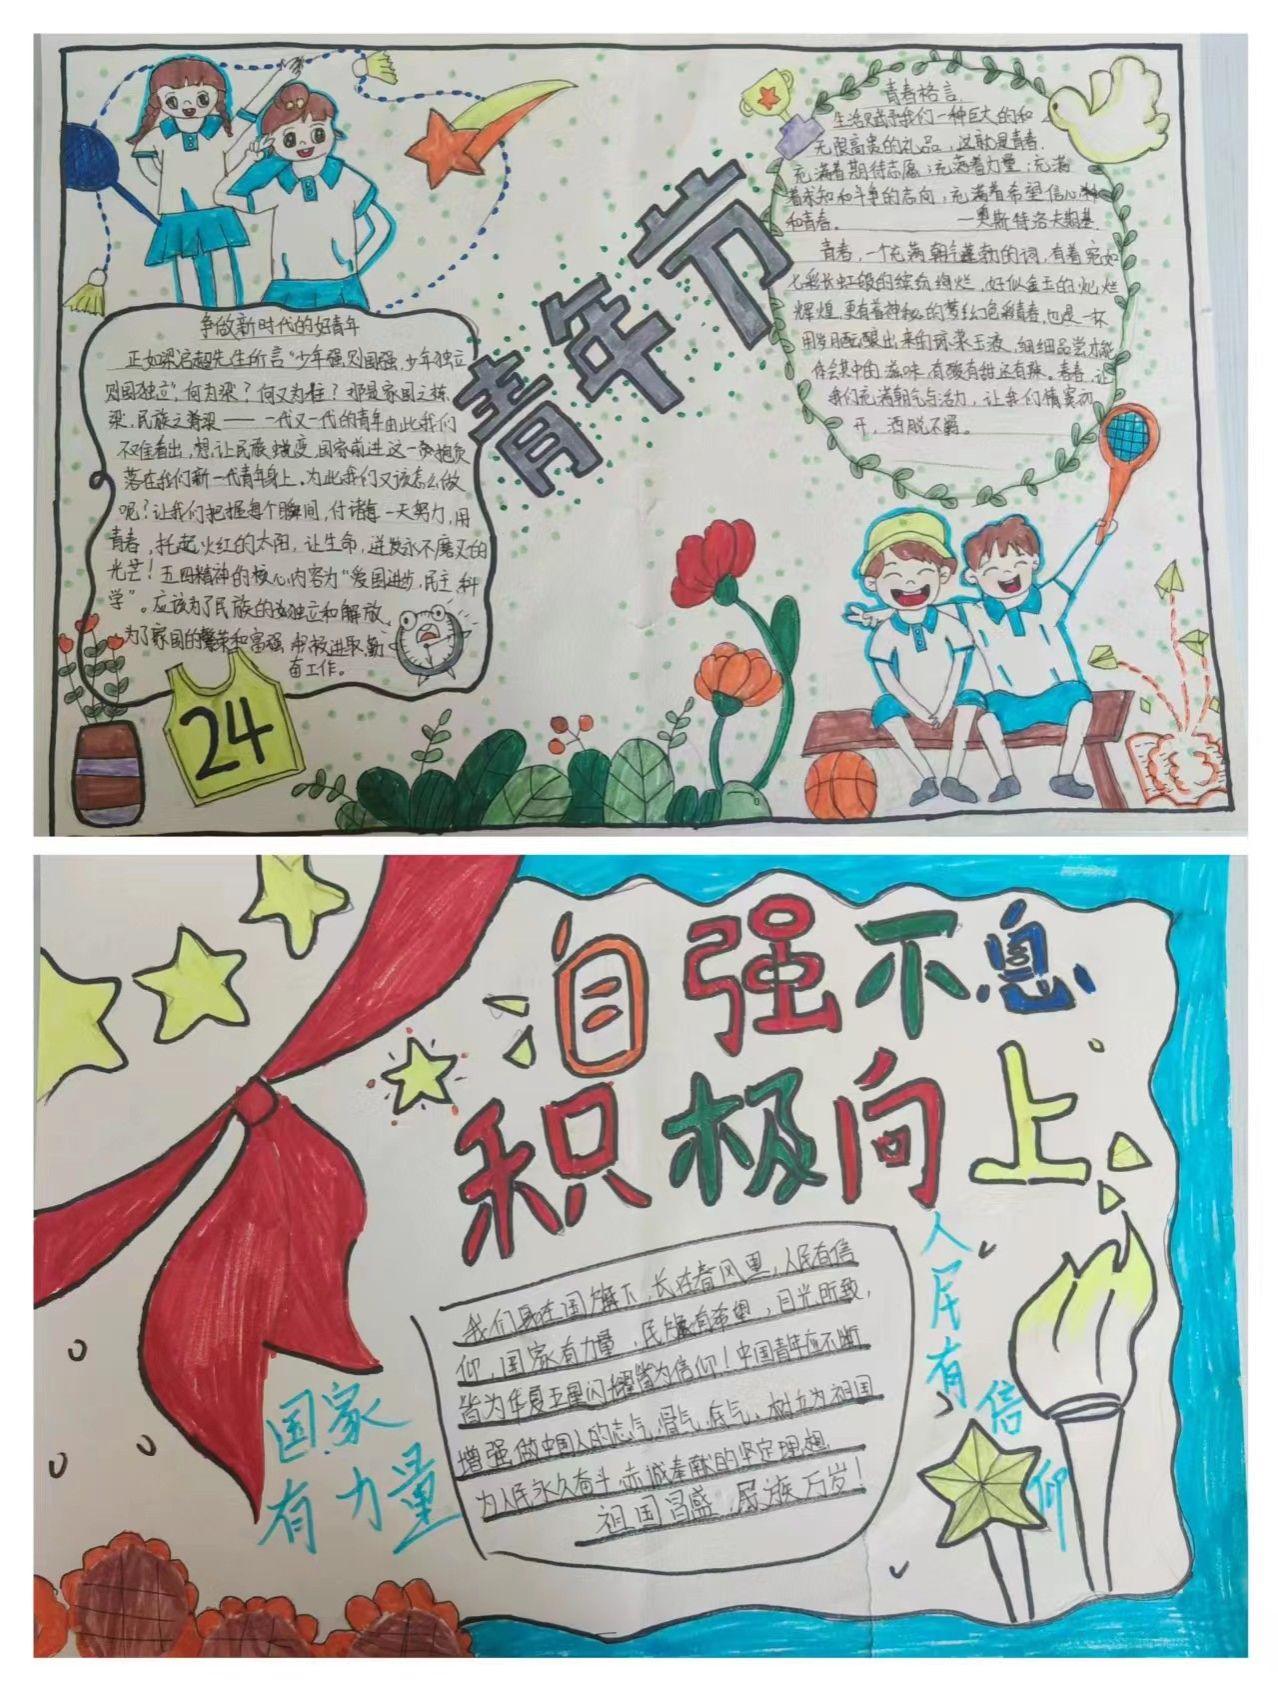 青年节
争做新时代的好青年
正如梁启超先生所言“少年强则国强,少年独立
则国独立”,何为梁?何又为柱?那是家国之栋
梁,民族之脊梁——一代又一代的青年由此我们
不难看出,想让民族蜕变,国家前进这一势抱负
落在我们新一代青年身上。为此我们又该怎么做
呢?让我们把握每个瞬间,付诸每一天努力,用
青春,托起火红的太阳,让生命,迸发永不磨灭的
光芒!五四精神的核心内容为“爱国进步,民主科
学”。应该为了民族的独立和解放,
为了家国的繁荣和富强 积极进取,勤
奋工作。
24
青春格言
生活赋予我们一种巨大的和
无限高贵的礼品,这就是青春.
充满着期待志愿;充满着力量;充满
着求知和斗争的志向,充满着希望信心
和青春。 —奥斯特洛夫斯基
青春,一个充满朝气蓬勃的词,有着宛如
七彩长虹般的缤纷绚烂,好似金玉的灿烂
辉煌,更有着神秘的梦幻色彩青春,也是一杯
用岁月酝酿出来的琼浆玉液,细细品尝才能
体会其中的滋味,有酸有甜还有辣。青春,让
我们充满朝气与活力,让我们情窦初
开,洒脱不羁。
自强不息
积极向上
我们身在国旗下,长在春风里,人民有信
仰,国家有力量,民族有希望,目光所致,
皆为华夏五星闪耀皆为信仰!中国青年应不断
增强做中国人的志气,骨气,底气、树立为祖国
为人民永久奋斗、赤诚奉献的坚定理想
祖国昌盛,民族万岁!
国家
有力量
人民有信仰